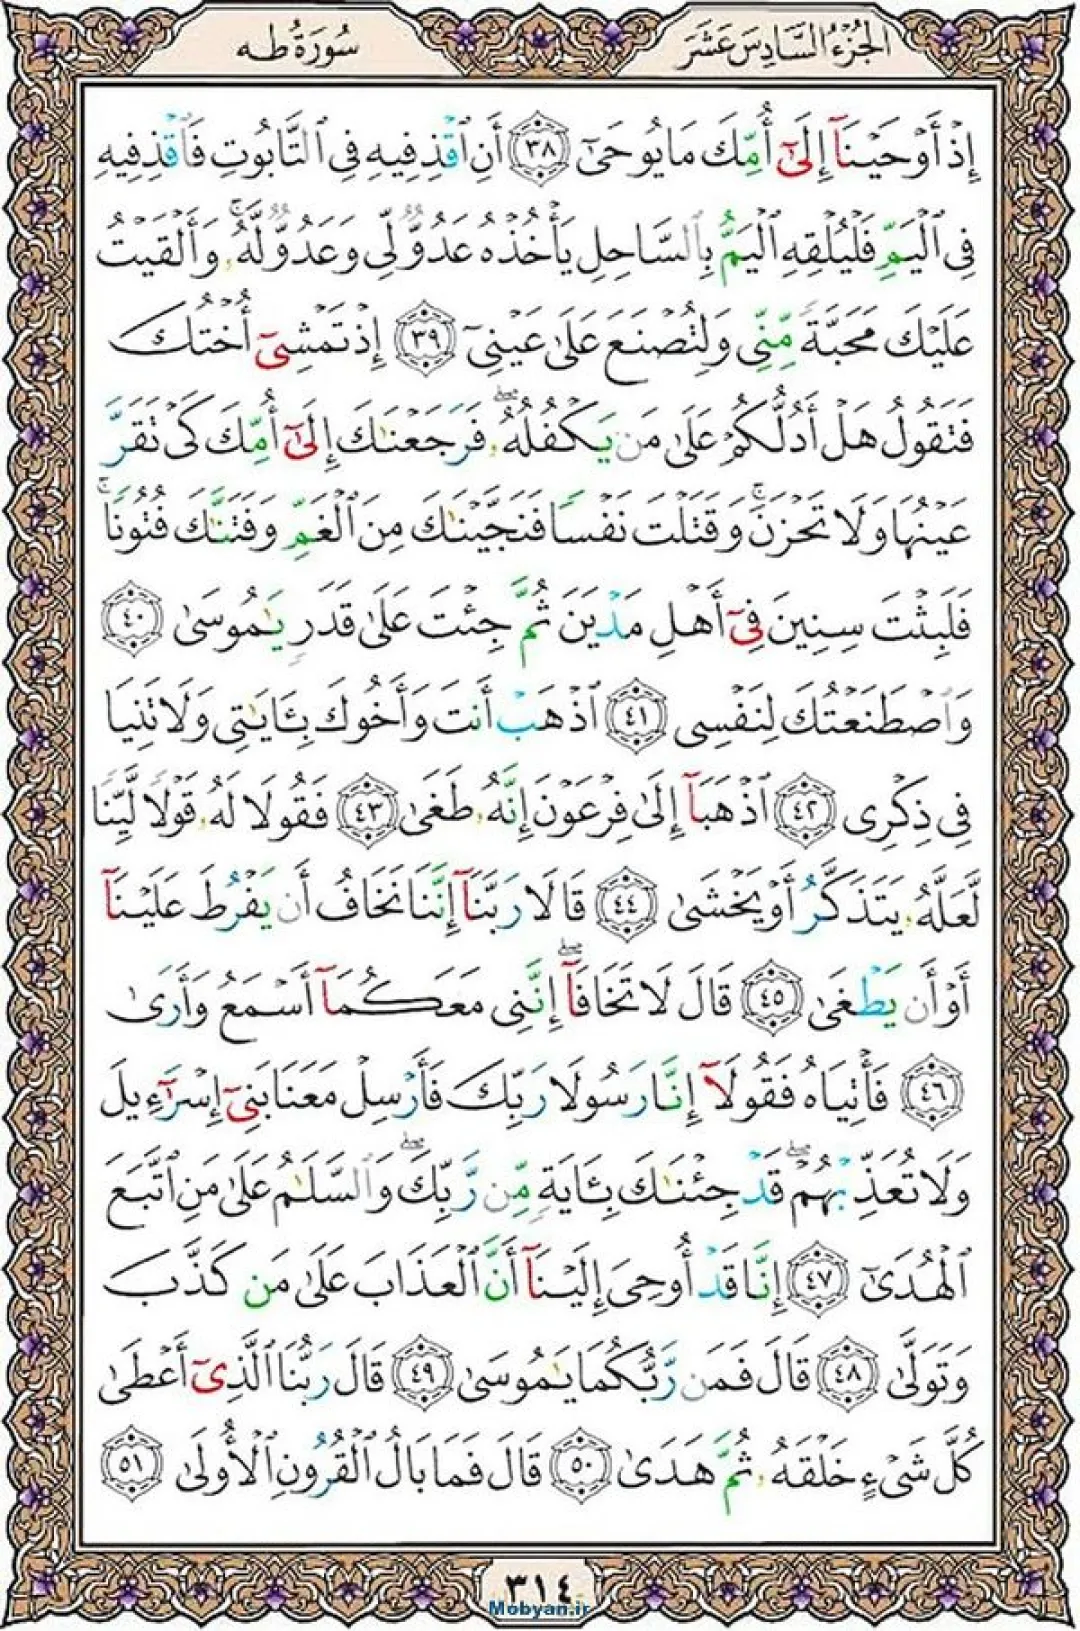 الجُزْءُ السَّادِسَ عَشَرَ
سُورَةُ طه
إِذْ أَوْحَيْنَآ إِلَىٰٓ أُمِّكَ مَا يُوحَىٰٓ ﴿٣٨﴾ أَنِ ٱقْذِفِيهِ فِى ٱلتَّابُوتِ فَٱقْذِفِيهِ
فِى ٱلْيَمِّ فَلْيُلْقِهِ ٱلْيَمُّ بِٱلسَّاحِلِ يَأْخُذْهُ عَدُوٌّ لِّى وَعَدُوٌّ لَّهُۥ ۚ وَأَلْقَيْتُ
عَلَيْكَ مَحَبَّةً مِّنِّى وَلِتُصْنَعَ عَلَىٰ عَيْنِىٓ ﴿٣٩﴾ إِذْ تَمْشِىٓ أُخْتُكَ
فَتَقُولُ هَلْ أَدُلُّكُمْ عَلَىٰ مَن يَكْفُلُهُۥ ۖ فَرَجَعْنَٰكَ إِلَىٰٓ أُمِّكَ كَىْ تَقَرَّ
عَيْنُهَا وَلَا تَحْزَنَ ۚ وَقَتَلْتَ نَفْسًا فَنَجَّيْنَٰكَ مِنَ ٱلْغَمِّ وَفَتَنَّٰكَ فُتُونًا ۚ
فَلَبِثْتَ سِنِينَ فِىٓ أَهْلِ مَدْيَنَ ثُمَّ جِئْتَ عَلَىٰ قَدَرٍ يَٰمُوسَىٰ ﴿٤٠﴾
وَٱصْطَنَعْتُكَ لِنَفْسِى ﴿٤١﴾ ٱذْهَبْ أَنتَ وَأَخُوكَ بِـَٔايَٰتِى وَلَا تَنِيَا
فِى ذِكْرِى ﴿٤٢﴾ ٱذْهَبَآ إِلَىٰ فِرْعَوْنَ إِنَّهُۥ طَغَىٰ ﴿٤٣﴾ فَقُولَا لَهُۥ قَوْلًا لَّيِّنًا
لَّعَلَّهُۥ يَتَذَكَّرُ أَوْ يَخْشَىٰ ﴿٤٤﴾ قَالَا رَبَّنَآ إِنَّنَا نَخَافُ أَن يَفْرُطَ عَلَيْنَآ
أَوْ أَن يَطْغَىٰ ﴿٤٥﴾ قَالَ لَا تَخَافَآ ۖ إِنَّنِى مَعَكُمَآ أَسْمَعُ وَأَرَىٰ
﴿٤٦﴾ فَأْتِيَاهُ فَقُولَآ إِنَّا رَسُولَا رَبِّكَ فَأَرْسِلْ مَعَنَا بَنِىٓ إِسْرَٰٓءِيلَ
وَلَا تُعَذِّبْهُمْ ۖ قَدْ جِئْنَٰكَ بِـَٔايَةٍ مِّن رَّبِّكَ ۖ وَٱلسَّلَٰمُ عَلَىٰ مَنِ ٱتَّبَعَ
ٱلْهُدَىٰٓ ﴿٤٧﴾ إِنَّا قَدْ أُوحِىَ إِلَيْنَآ أَنَّ ٱلْعَذَابَ عَلَىٰ مَن كَذَّبَ
وَتَوَلَّىٰ ﴿٤٨﴾ قَالَ فَمَن رَّبُّكُمَا يَٰمُوسَىٰ ﴿٤٩﴾ قَالَ رَبُّنَا ٱلَّذِىٓ أَعْطَىٰ
كُلَّ شَىْءٍ خَلْقَهُۥ ثُمَّ هَدَىٰ ﴿٥٠﴾ قَالَ فَمَا بَالُ ٱلْقُرُونِ ٱلْأُولَىٰ ﴿٥١﴾
٣١٤
Mobyan.ir